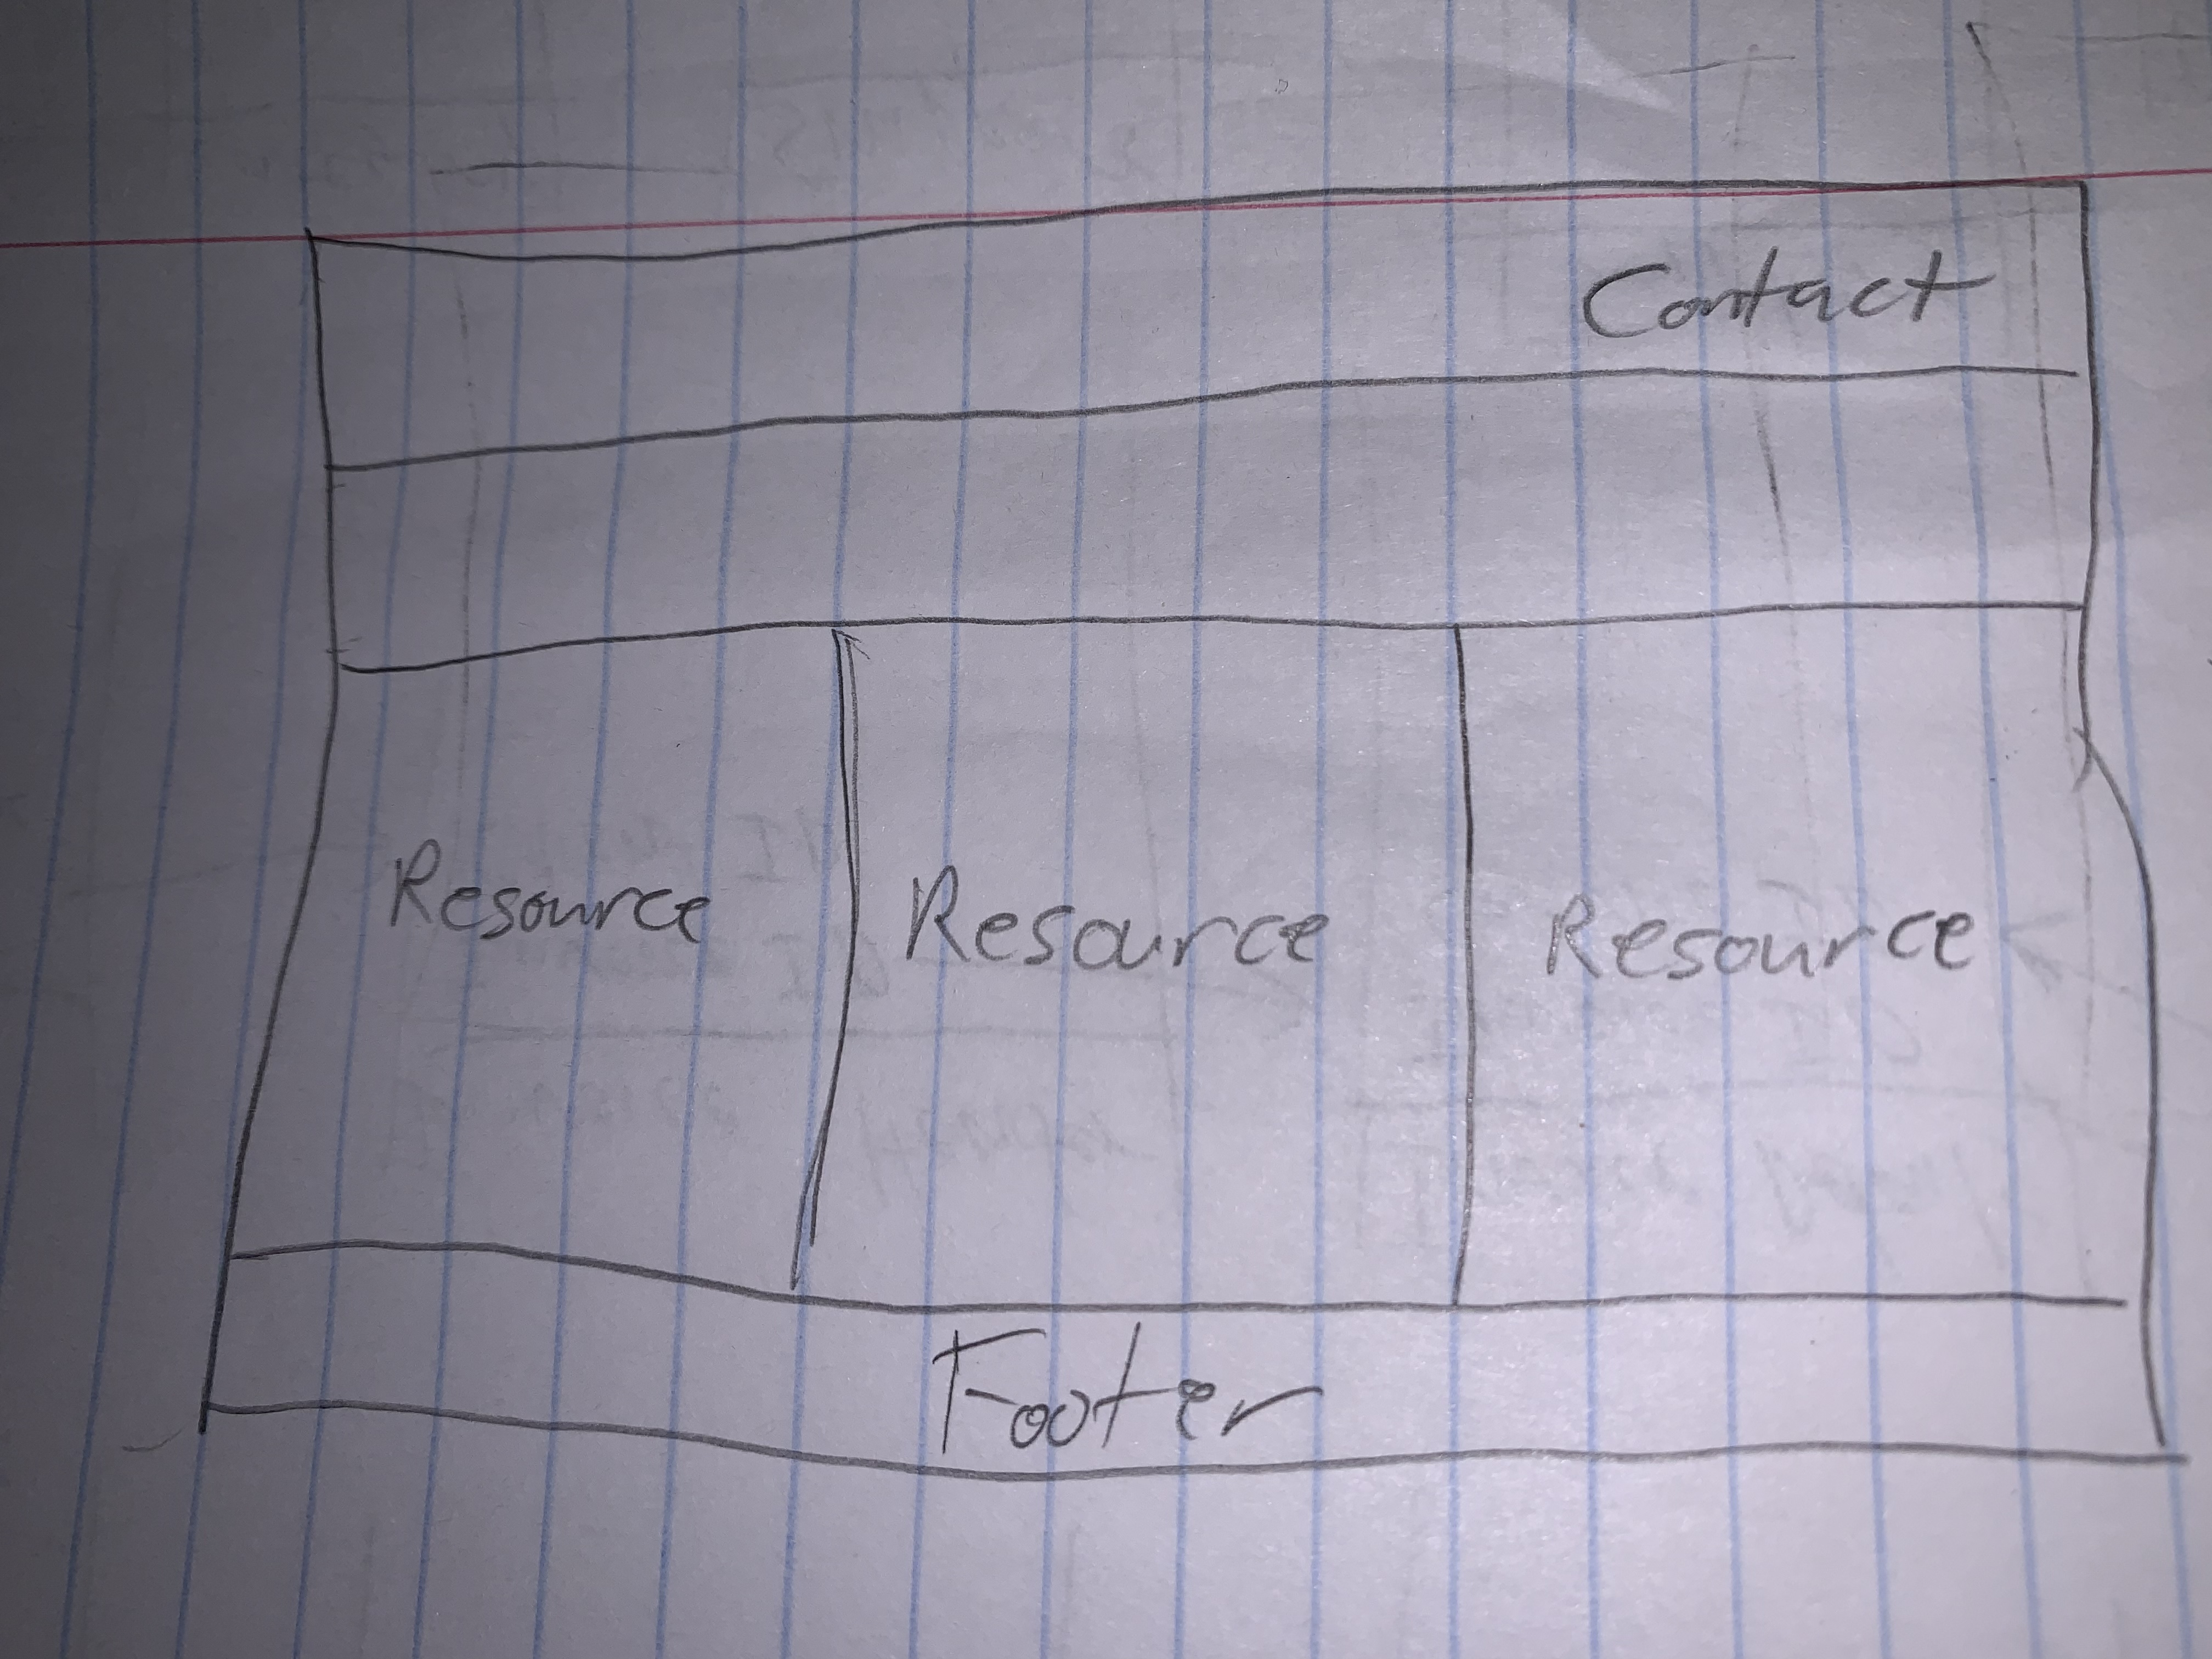 Contact
Resource Resource Resource
Footer